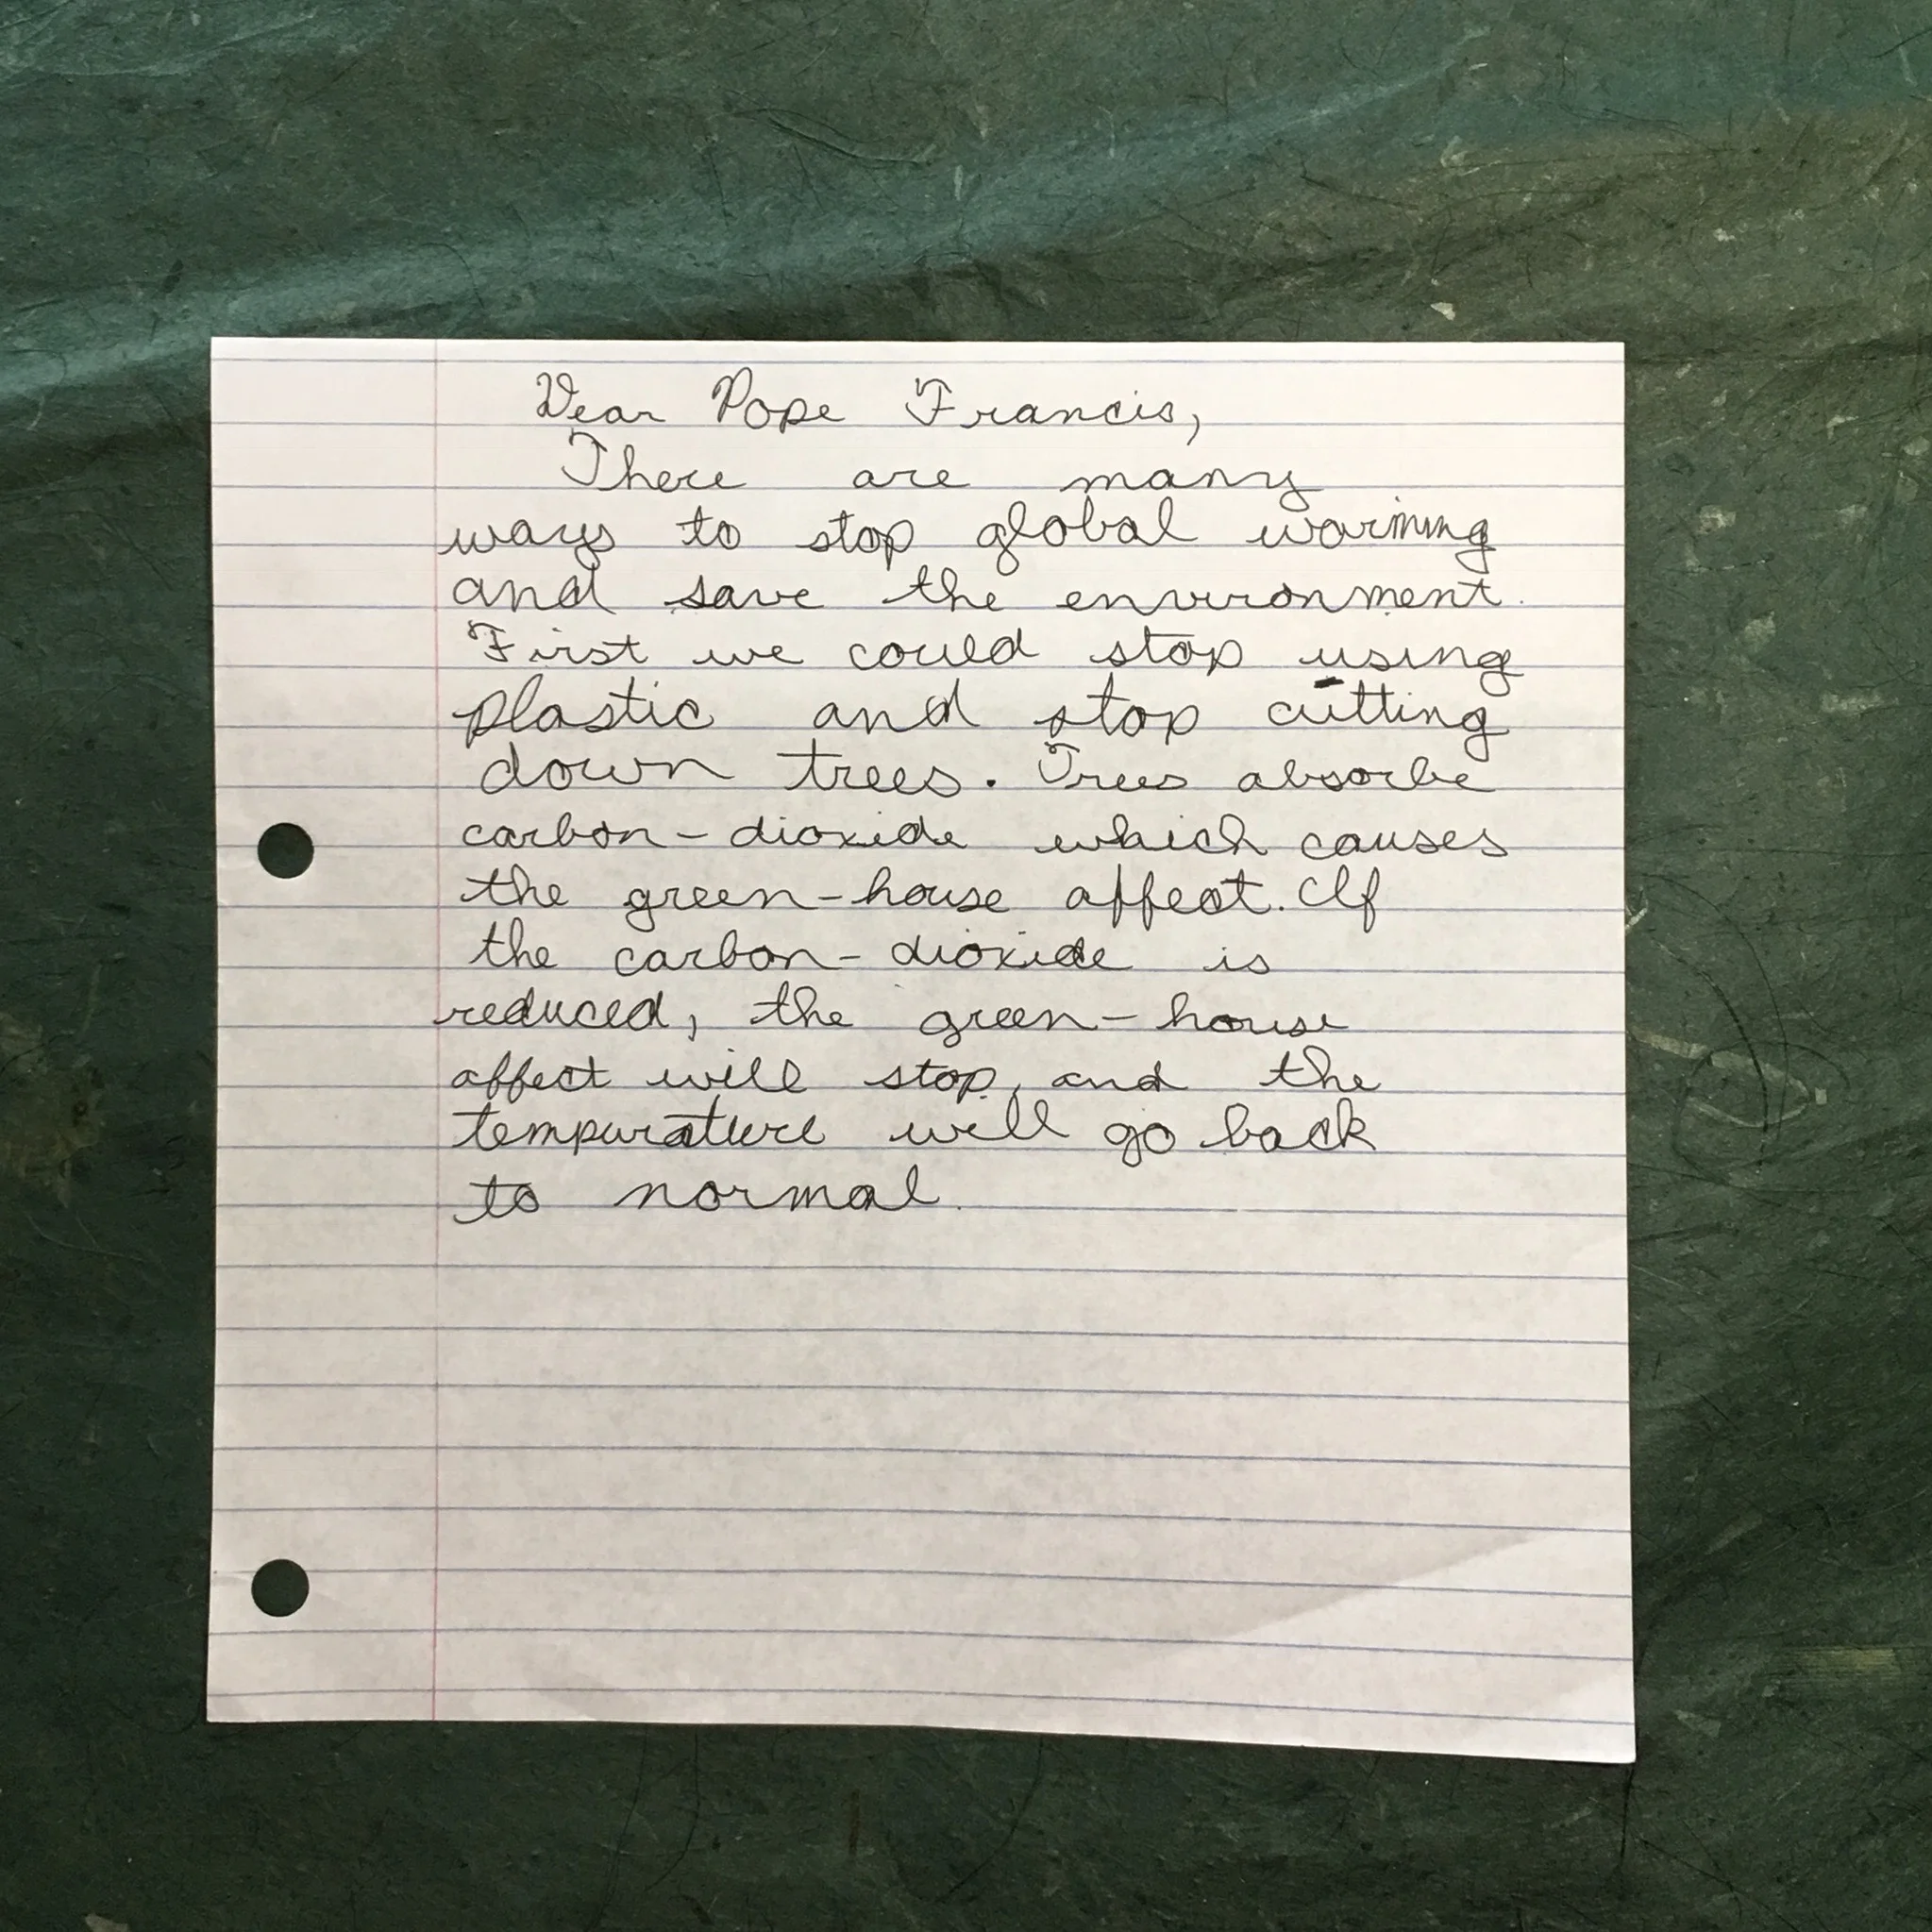 Dear Pope Francis,
There are many
ways to stop global warming
and save the environment.
First we could stop using
plastic and stop cutting
down trees. Trees absorbe
carbon-dioxide which causes
the green-house affect. If
the carbon-dioxide is
reduced, the green-house
affect will stop, and the
tempurature will go back
to normal.